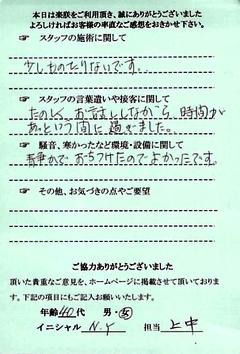 本日は楽咲をご利用頂き、誠にありがとうございました
よろしければお客様の率直なご感想をおきかせ下さい。
☞ スタッフの施術に関して
少し力のたりないです。
☞ スタッフの言葉遣いや接客に関して
たのしく、お話ししながら 時間が
あっという間に過ぎました。
☞ 騒音、寒かったなど環境・設備に関して
静かで おちつけたのでよかったです。
☞ その他、お気づきの点やご要望
ご協力ありがとうございました
頂いた貴重なご意見を、ホームページに掲載させて頂いております。
下記の項目にもご記入お願いいたします。
年齢 40 代 男・女
イニシャル N.Y 担当 上中